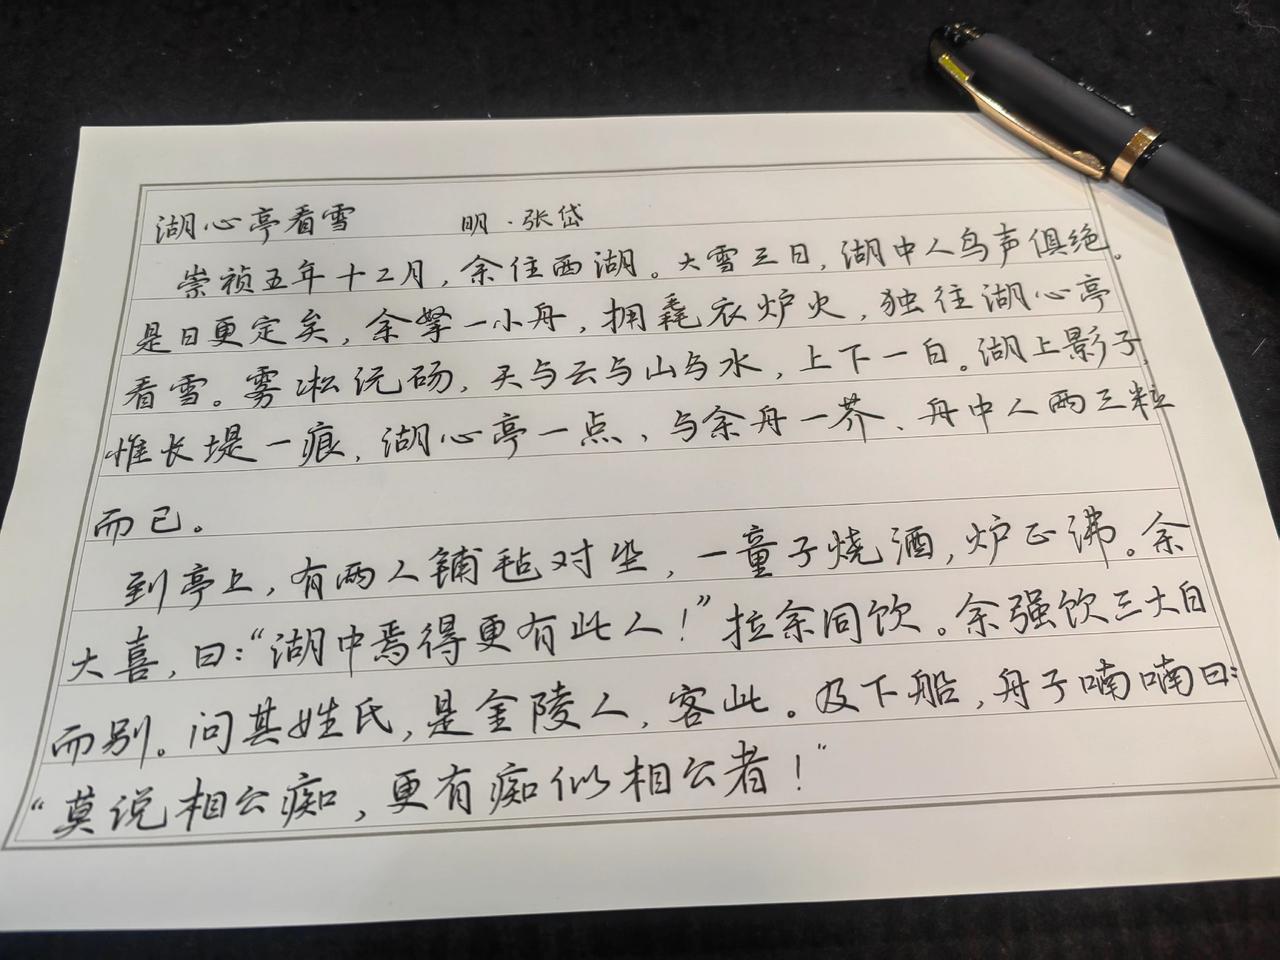 湖心亭看雪 明·张岱
崇祯五年十二月,余住西湖。大雪三日,湖中人鸟声俱绝。
是日更定矣,余拏一小舟,拥毳衣炉火,独往湖心亭
看雪。雾凇沆砀,天与云与山与水,上下一白。湖上影子,
惟长堤一痕,湖心亭一点,与余舟一芥、舟中人两三粒
而已。
到亭上,有两人铺毡对坐,一童子烧酒,炉正沸。余
大喜,曰:“湖中焉得更有此人!”拉余同饮。余强饮三大白
而别。问其姓氏,是金陵人,客此。及下船,舟子喃喃曰:
“莫说相公痴,更有痴似相公者!”